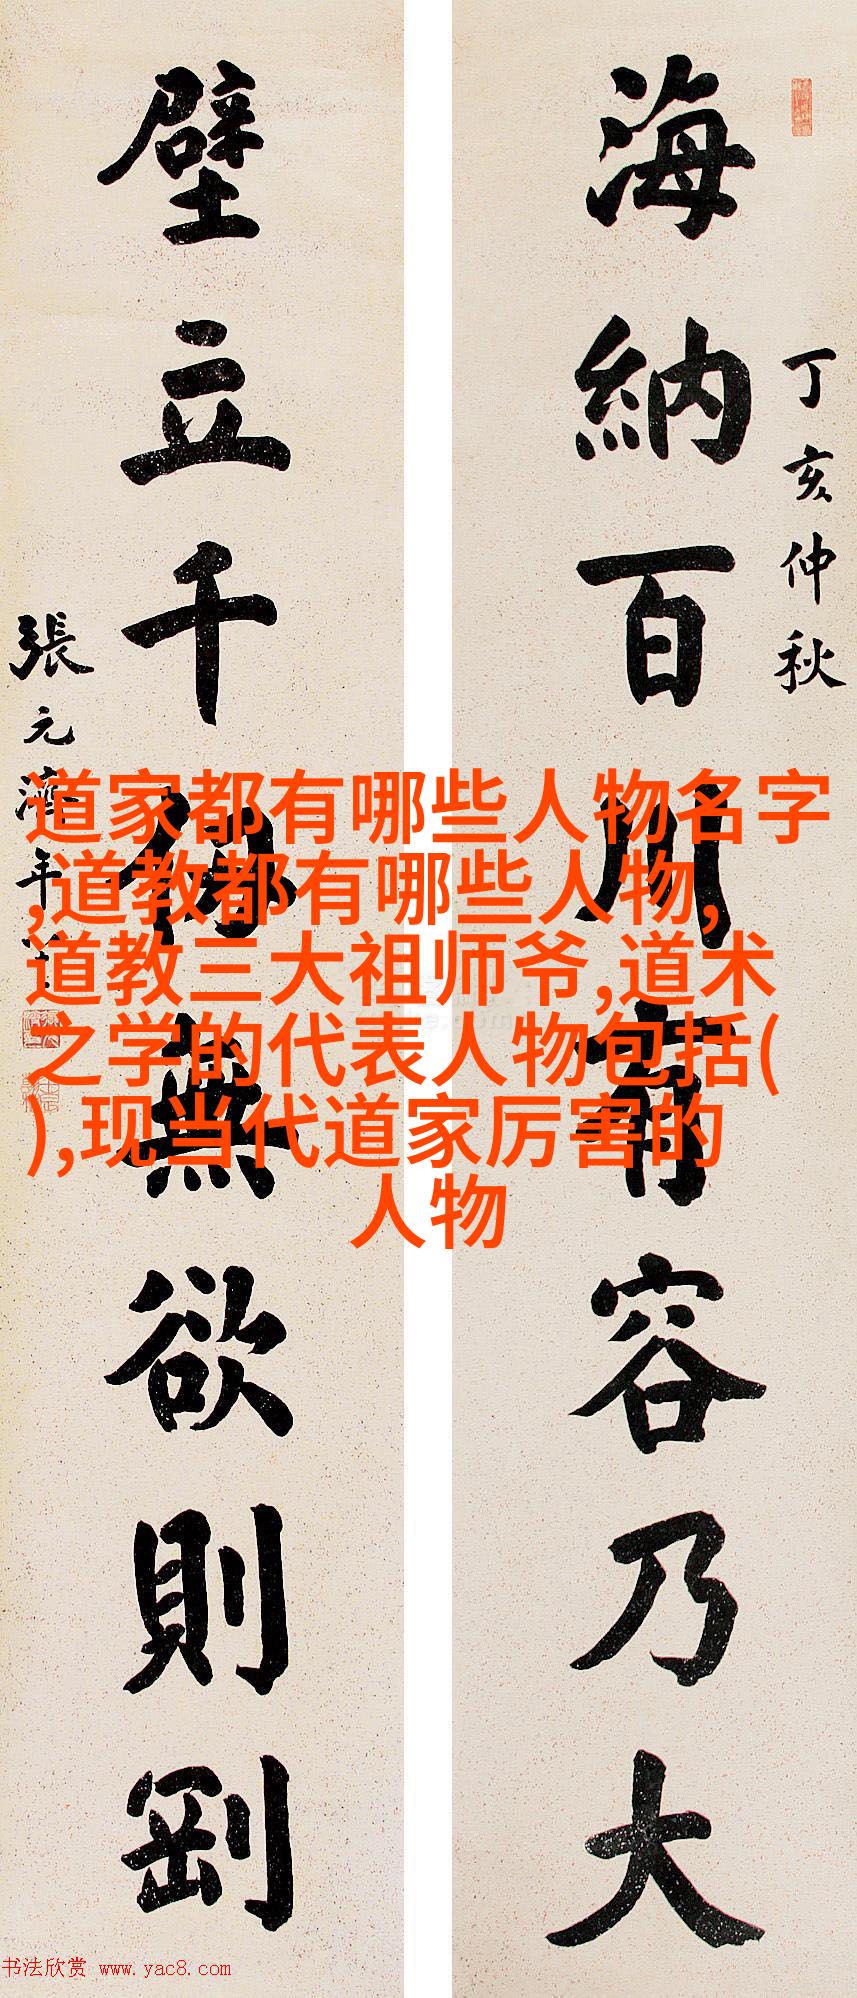 丁亥仲秋
海納百川有容乃大
壁立千仞無欲則剛
張元濟年
道家都有哪些人物名字
,道教都有哪些人物,
道教三大祖师爷,道术
之学的代表人物包括(
),现当代道家厉害的
人物
书法欣赏 www.yac8.com